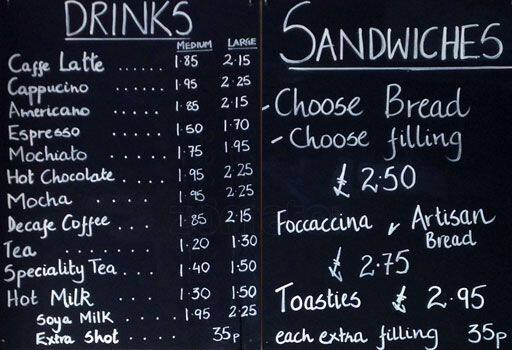 DRINKS
MEDIUM LARGE
Caffe Latte ...... 1.85 2.15
Cappucino ..... 1.95 2.25
Americano .... 1.85 2.15
Espresso ..... 1.50 1.70
Mochiato ..... 1.75 1.95
Hot Chocolate.... 1.95 2.25
Mocha ..... 1.95 2.25
Decafe Coffee... 1.85 2.15
Tea ....... 1.20 1.30
Speciality Tea... 1.40 1.50
Hot Milk ... 1.30 1.50
Soya Milk .... 1.95 2.25
Extra Shot .... 35p
SANDWICHES
- Choose Bread
- Choose filling
£ 2.50
Foccaccina , Artisan
Bread
£ 2.75
Toasties £ 2.95
each extra filling 35p